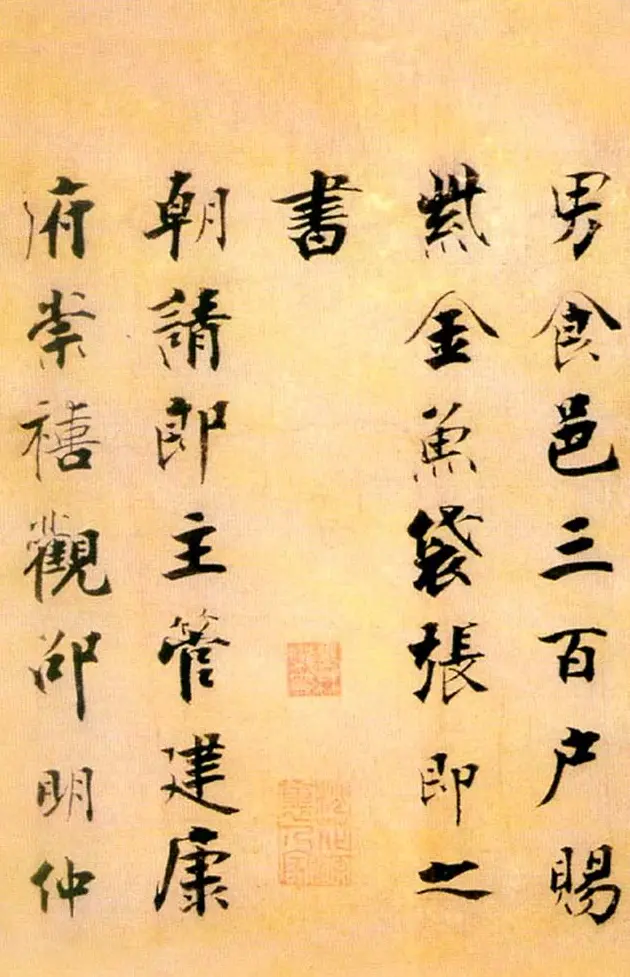 男食邑三百户賜
紫金魚袋張即之
書
朝請郎主管建康
府崇禧觀邵明仲